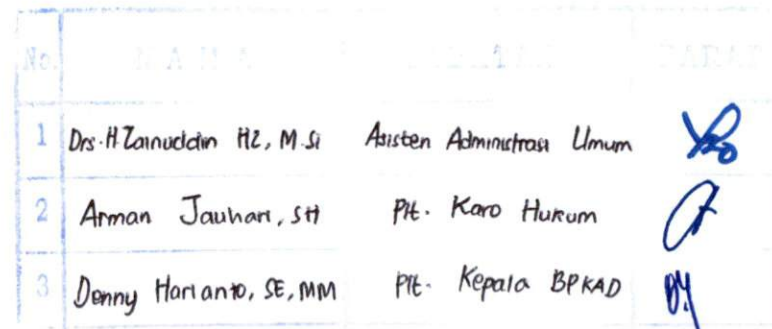 No. N A M A PARAF
1 Drs. H. Zainuddin HZ, M.Si Asisten Administrasi Umum
2 Arman Jauhari, SH Plt. Karo Hukum
3 Denny Harianto, SE, MM Plt. Kepala BPKAD